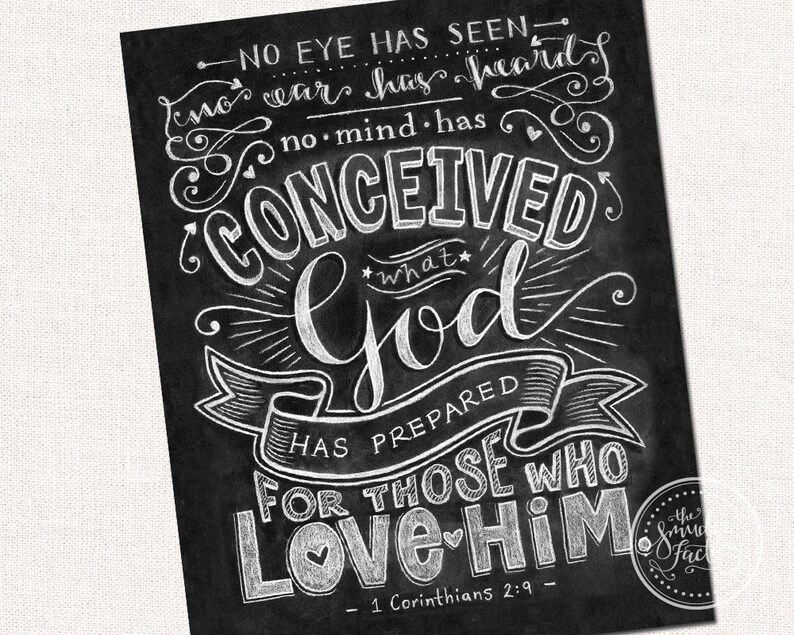 NO EYE HAS SEEN
no ear has heard
no • mind • has
CONCEIVED
what
God
HAS PREPARED
FOR THOSE WHO
LOVE HIM
- 1 Corinthians 2:9 -
the
Smudge